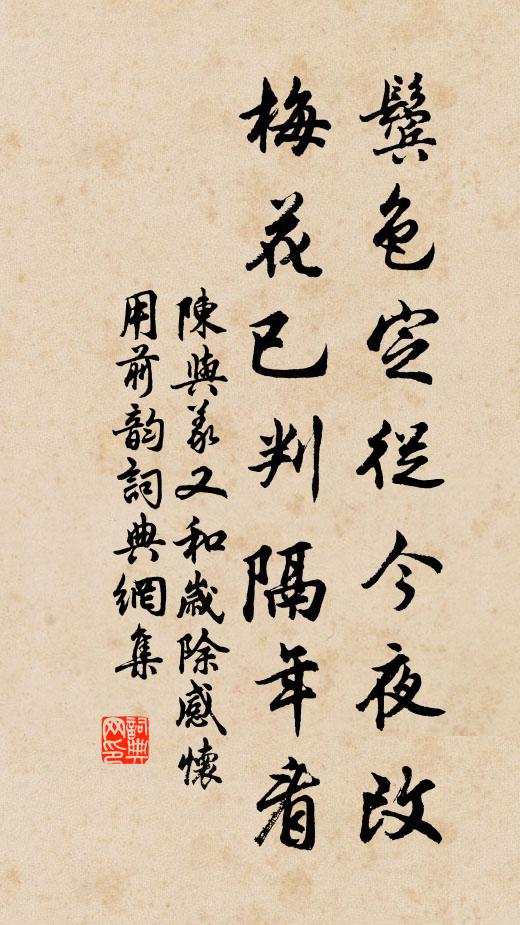 鬢色定從今夜改
梅花已判隔年看
陳與義又和歲除感懷
用前韵詞典網集
詞典網印